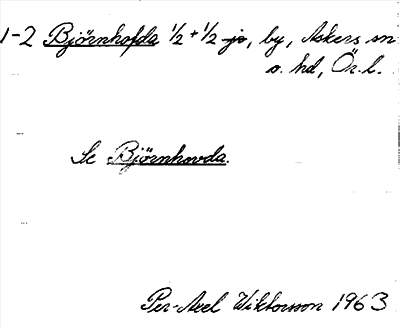 1-2 Björnhofda 1/2 + 1/2 jo, by, Askers sn
o. hd, Ör. l.
Se Björnhovda.
Per-Axel Wiktorsson 1963